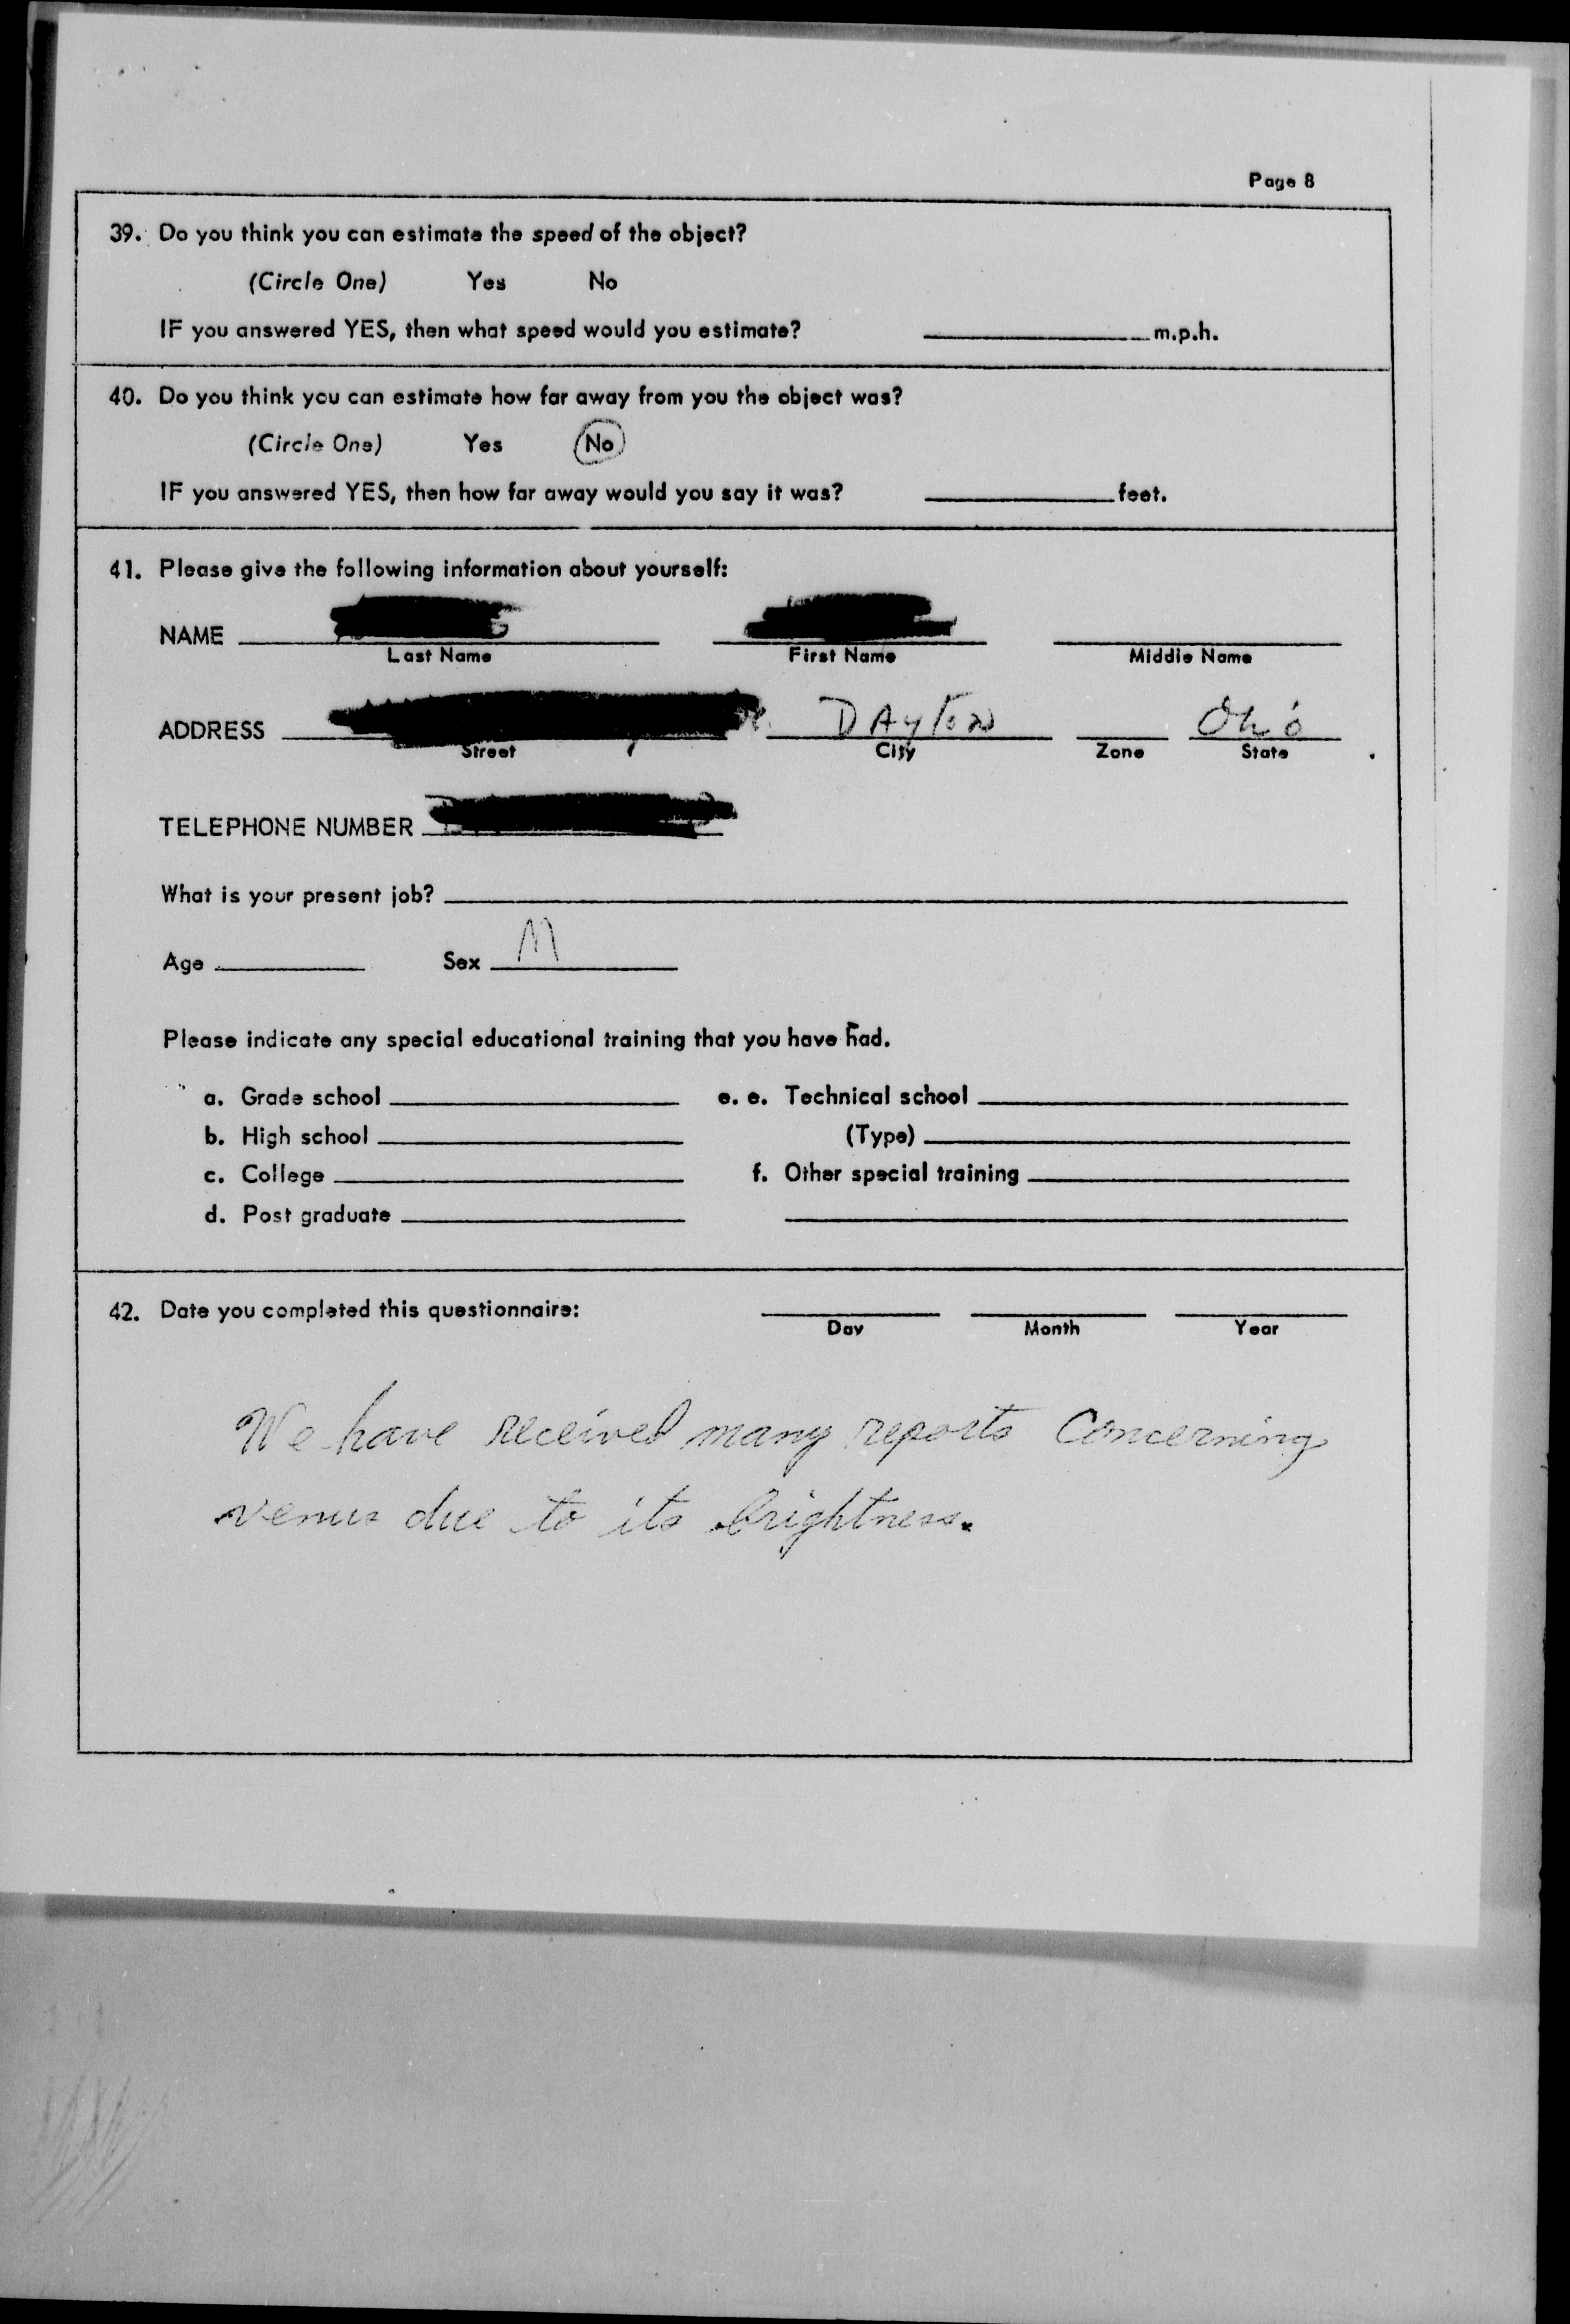 Page 8
39. Do you think you can estimate the speed of the object?
(Circle One) Yes No
IF you answered YES, then what speed would you estimate? m.p.h.
40. Do you think you can estimate how far away from you the object was?
(Circle One) Yes No
IF you answered YES, then how far away would you say it was? feet.
41. Please give the following information about yourself:
NAME
Last Name First Name Middle Name
ADDRESS DAyton Ohio
Street City Zone State
TELEPHONE NUMBER
What is your present job?
Age Sex M
Please indicate any special educational training that you have had.
a. Grade school e. e. Technical school
b. High school (Type)
c. College f. Other special training
d. Post graduate
42. Date you completed this questionnaire:
Day Month Year
We have received many reports Concerning
venus due to its brightness.